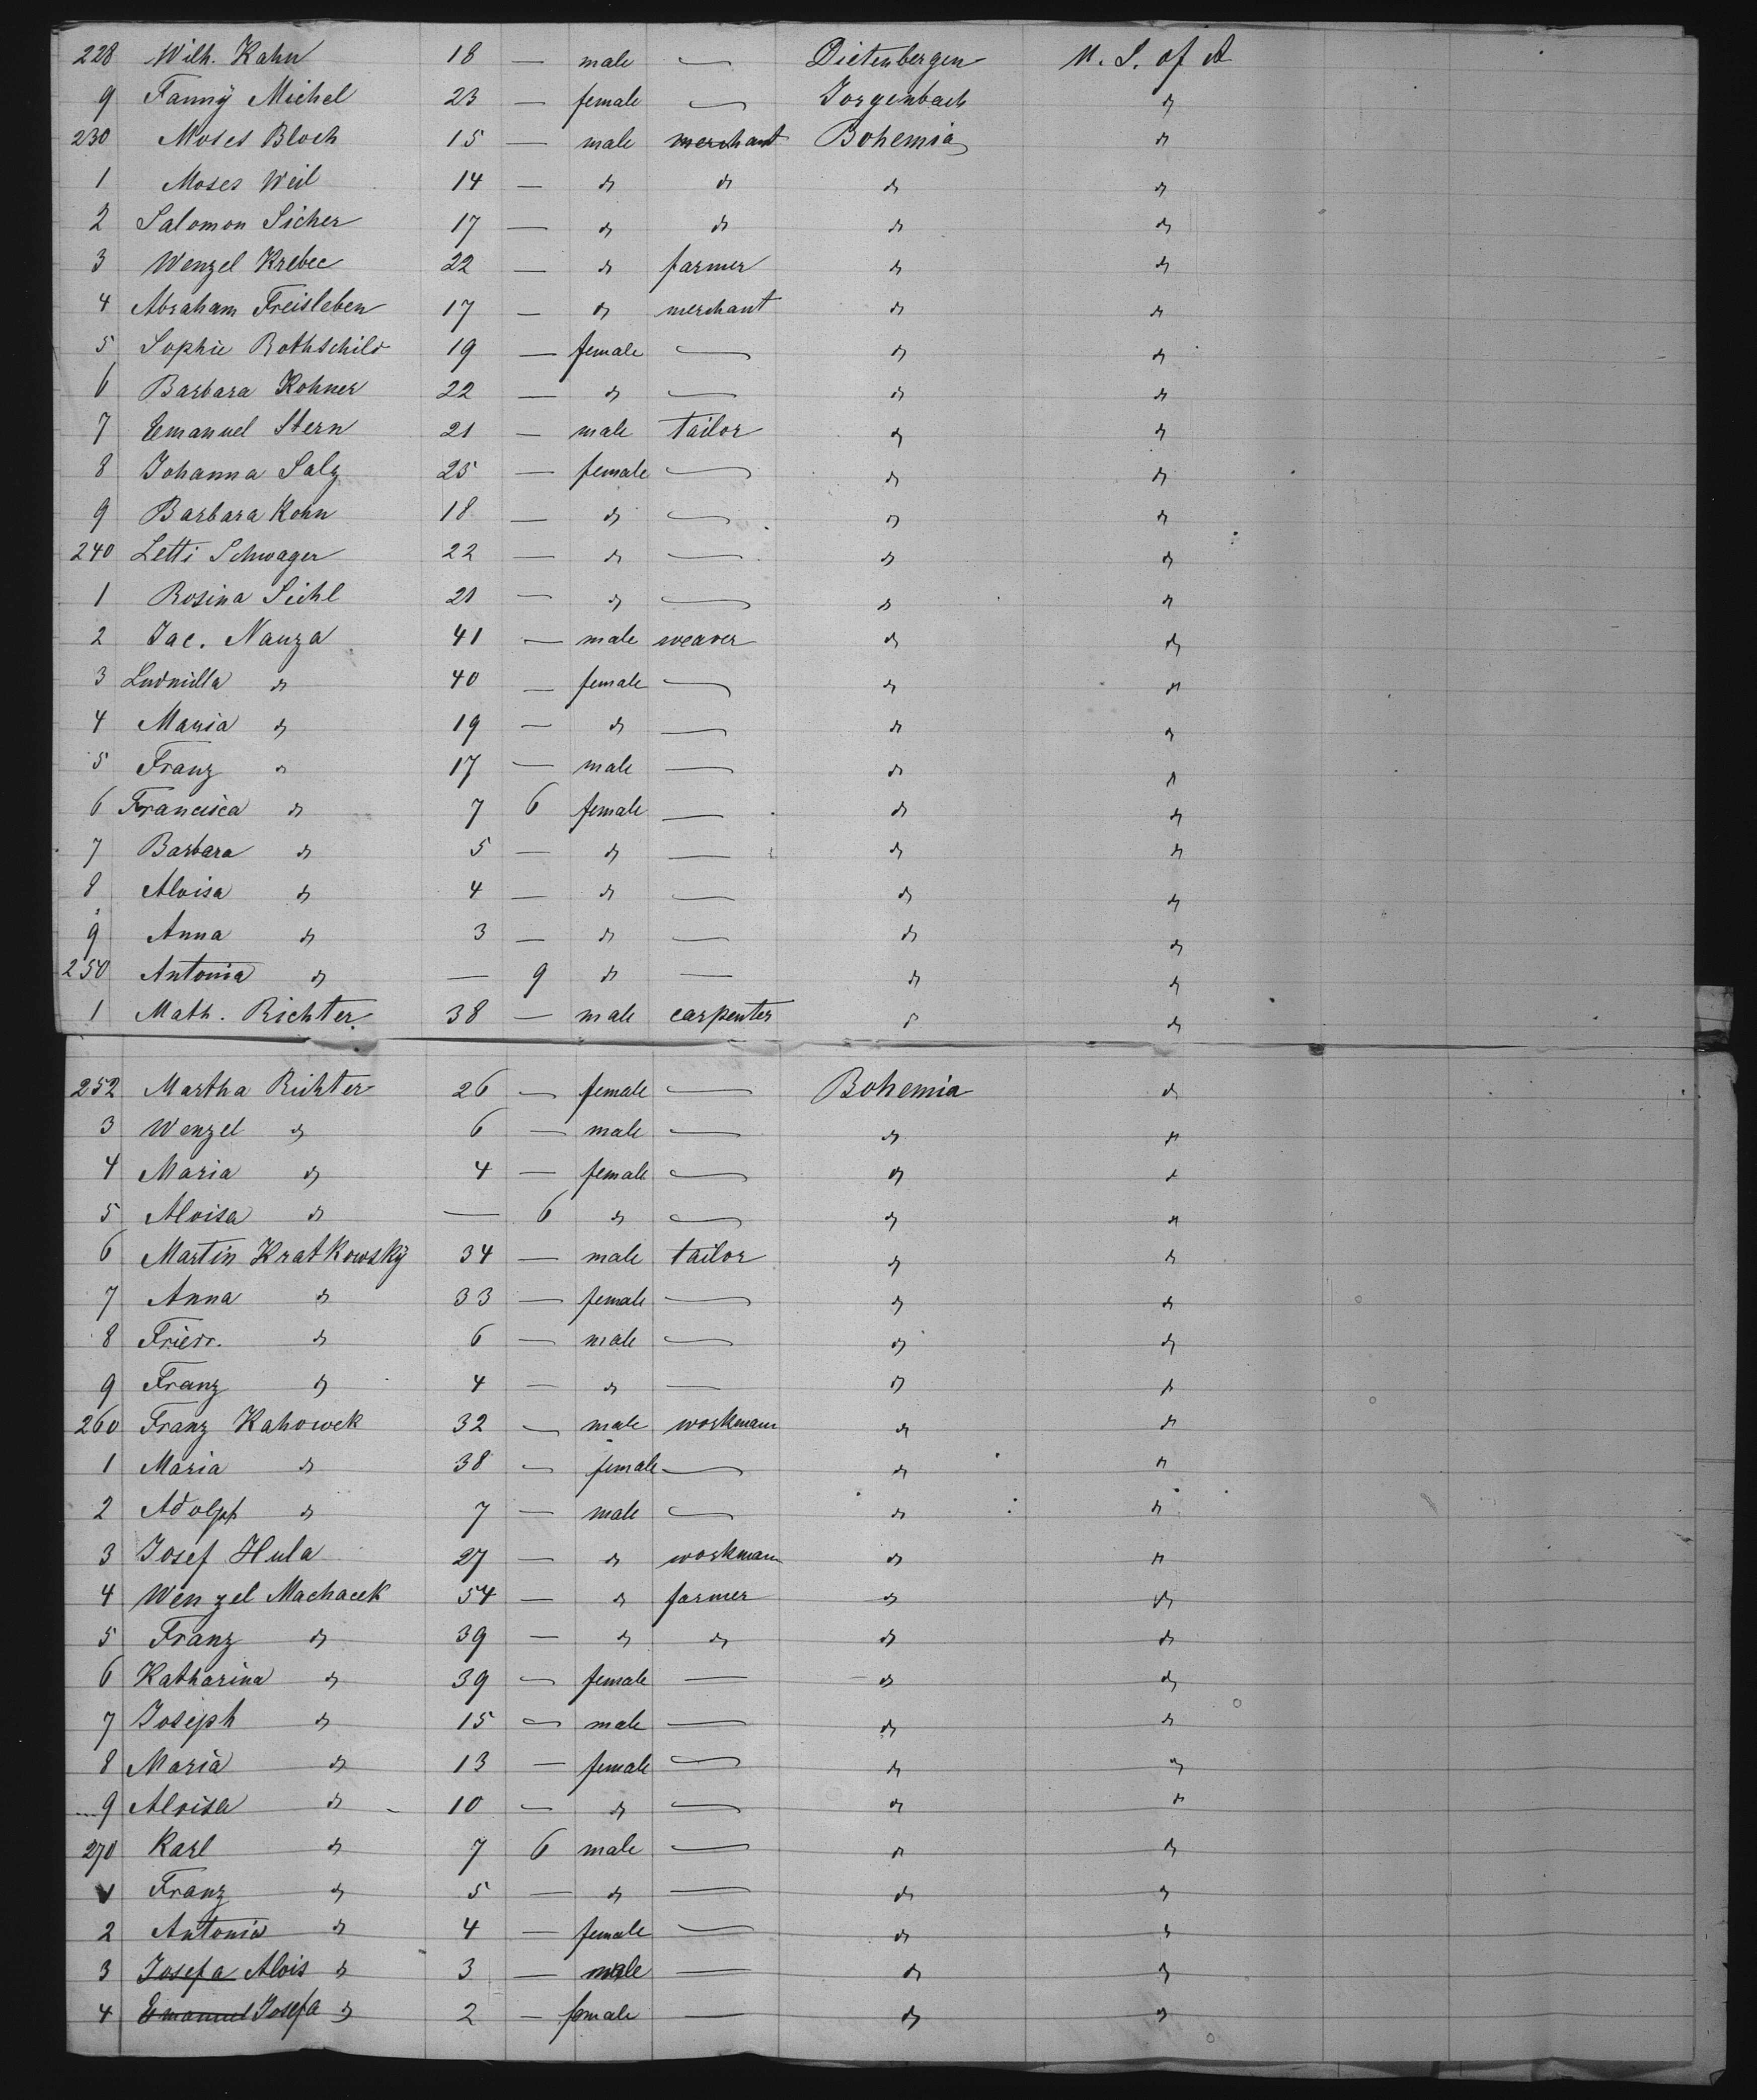 228 Wilh. Kahn 18 — male — Dietenbergen U. S. of A
9 Fanny Michel 23 — female — Jorgenbach "
230 Moses Bloch 15 — male merchant Bohemia "
1 Moses Weil 14 — " " " "
2 Salomon Sicher 17 — " " " "
3 Wenzel Krebec 22 — " farmer " "
4 Abraham Freisleben 17 — " merchant " "
5 Sophie Rothschild 19 — female — " "
6 Barbara Kohner 22 — " — " "
7 Emanuel Stern 21 — male tailor " "
8 Johanna Salz 25 — female — " "
9 Barbara Kohn 18 — " — " "
240 Letti Schwager 22 — " — " "
1 Rosina Sichl 21 — " — " "
2 Jac. Nauza 41 — male weaver " "
3 Ludmilla " 40 — female — " "
4 Maria " 19 — " — " "
5 Franz " 17 — male — " "
6 Francisca " 7 6 female — " "
7 Barbara " 5 — " — " "
8 Aloisa " 4 — " — " "
9 Anna " 3 — " — " "
250 Antonia " — 9 " — " "
1 Math. Richter 38 — male carpenter " "
252 Martha Richter 26 — female — Bohemia "
3 Wenzel " 6 — male — " "
4 Maria " 4 — female — " "
5 Aloisa " — 6 " — " "
6 Martin Kratkowsky 34 — male tailor " "
7 Anna " 33 — female — " "
8 Friedr. " 6 — male — " "
9 Franz " 4 — " — " "
260 Franz Kahowek 32 — male workmann " "
1 Maria " 38 — female — " "
2 Adolph " 7 — male — " "
3 Josef Hula 27 — " workmann " "
4 Wenzel Machacek 54 — " farmer " "
5 Franz " 39 — " " " "
6 Katharina " 39 — female — " "
7 Joseph " 15 — male — " "
8 Maria " 13 — female — " "
9 Aloisa " 10 — " — " "
270 Karl " 7 6 male — " "
1 Franz " 5 — " — " "
2 Antonia " 4 — female — " "
3 Josefa Alois " 3 — male — " "
4 Emanuel Josefa " 2 — female — " "